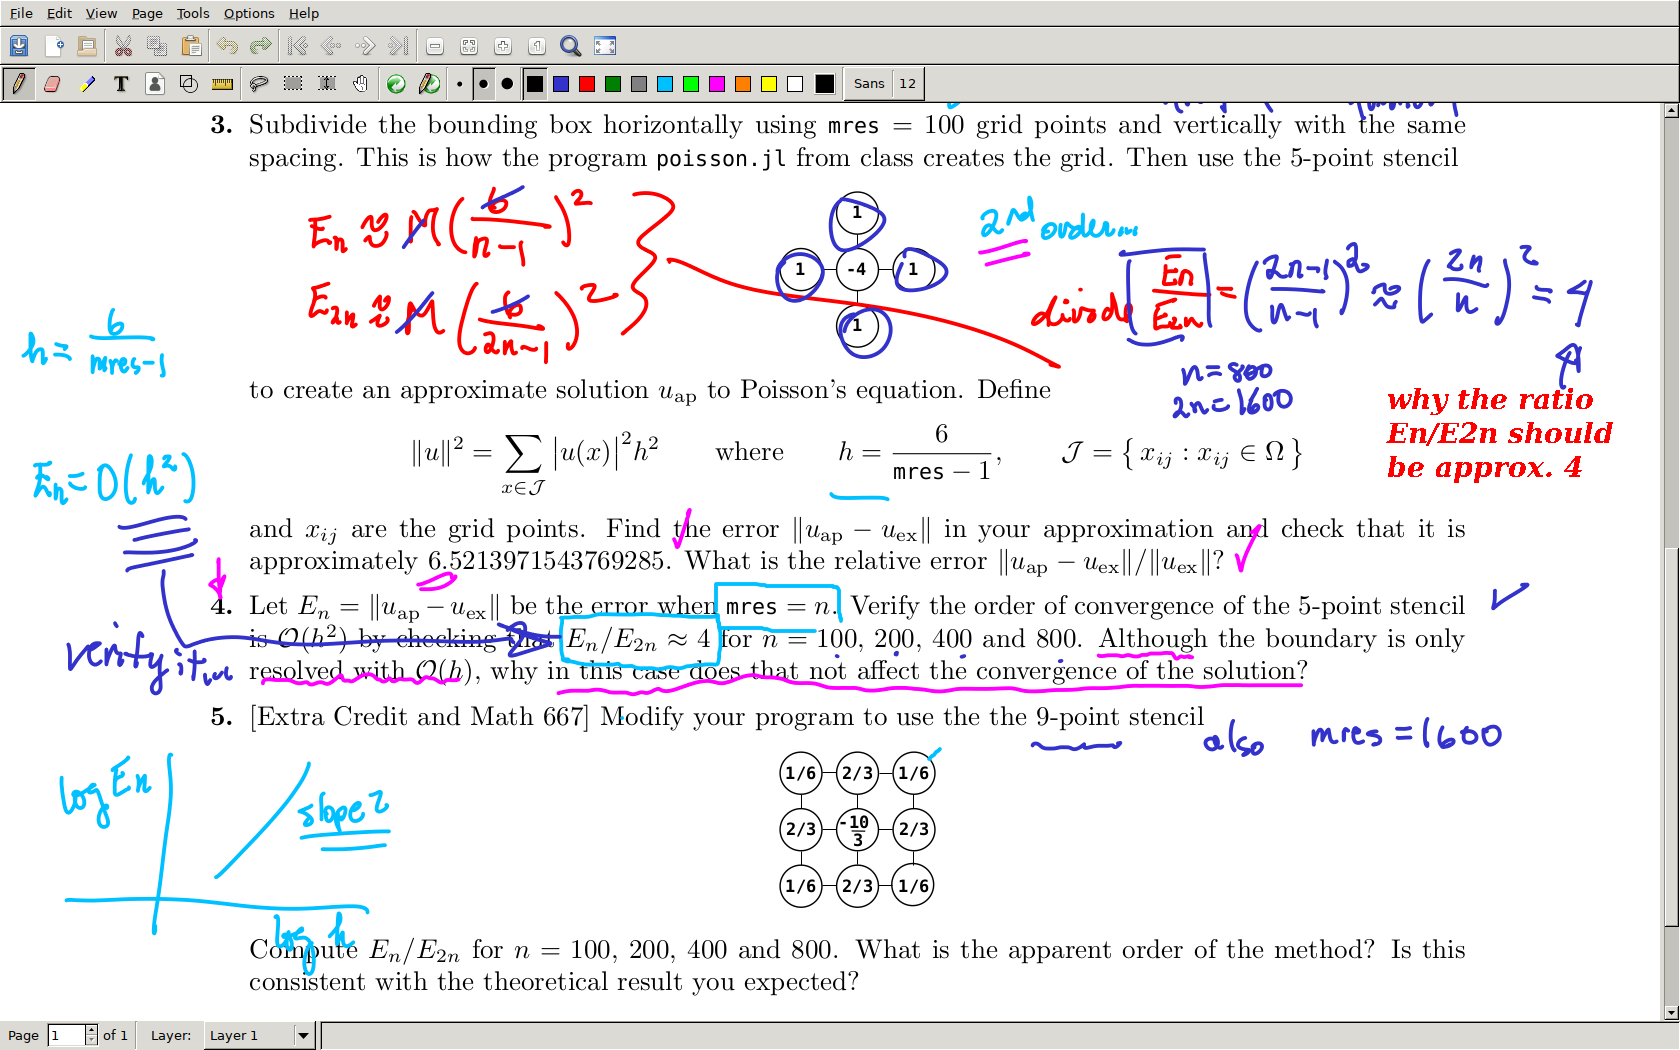 File Edit View Page Tools Options Help
Sans 12
3. Subdivide the bounding box horizontally using mres = 100 grid points and vertically with the same
spacing. This is how the program poisson.jl from class creates the grid. Then use the 5-point stencil
En ≈ M(6/(n-1))²
E2n ≈ M(6/(2n-1))²
1
1 -4 1
1
2nd order...
divide En/E2n = ((2n-1)/(n-1))² ≈ (2n/n)² = 4
n=800
2n=1600
h = 6/(mres-1)
to create an approximate solution u_ap to Poisson's equation. Define
why the ratio
En/E2n should
be approx. 4
‖u‖² = ∑_{x∈𝒥} |u(x)|²h² where h = 6/(mres − 1), 𝒥 = { x_ij : x_ij ∈ Ω }
En = O(h²)
and x_ij are the grid points. Find the error ‖u_ap − u_ex‖ in your approximation and check that it is
approximately 6.5213971543769285. What is the relative error ‖u_ap − u_ex‖/‖u_ex‖?
4. Let E_n = ‖u_ap − u_ex‖ be the error when mres = n. Verify the order of convergence of the 5-point stencil
is 𝒪(h²) by checking that E_n/E_2n ≈ 4 for n = 100, 200, 400 and 800. Although the boundary is only
verify it...
resolved with 𝒪(h), why in this case does that not affect the convergence of the solution?
5. [Extra Credit and Math 667] Modify your program to use the the 9-point stencil
also mres = 1600
log En
slope 2
log h
1/6 2/3 1/6
2/3 -10/3 2/3
1/6 2/3 1/6
Compute E_n/E_2n for n = 100, 200, 400 and 800. What is the apparent order of the method? Is this
consistent with the theoretical result you expected?
Page 1 of 1 Layer: Layer 1